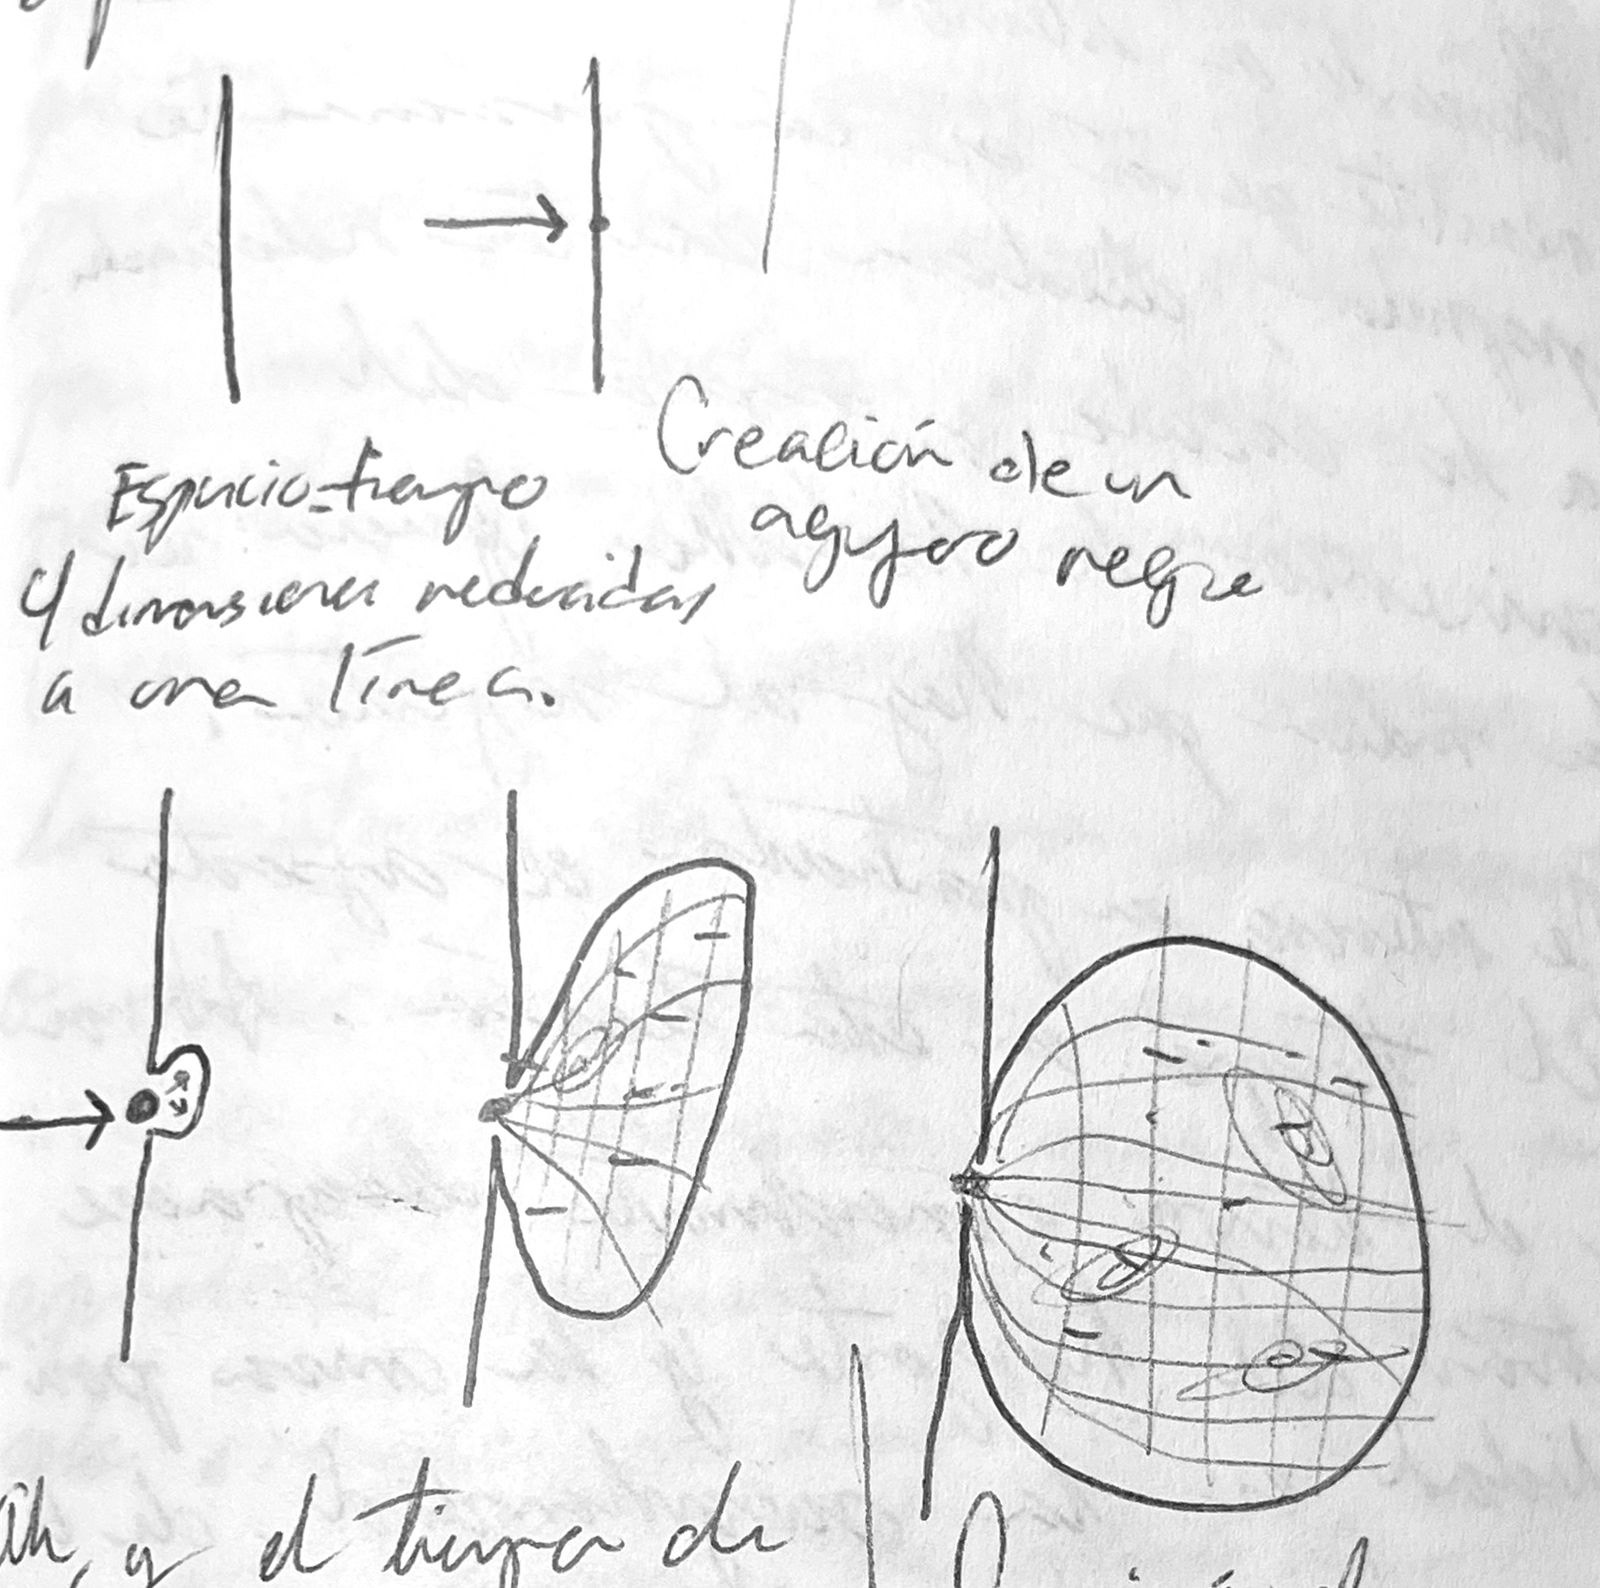 Espacio-tiempo
4 dimensiones reducidas
a una línea.
Creación de un
agujero negro
, y el tiempo de